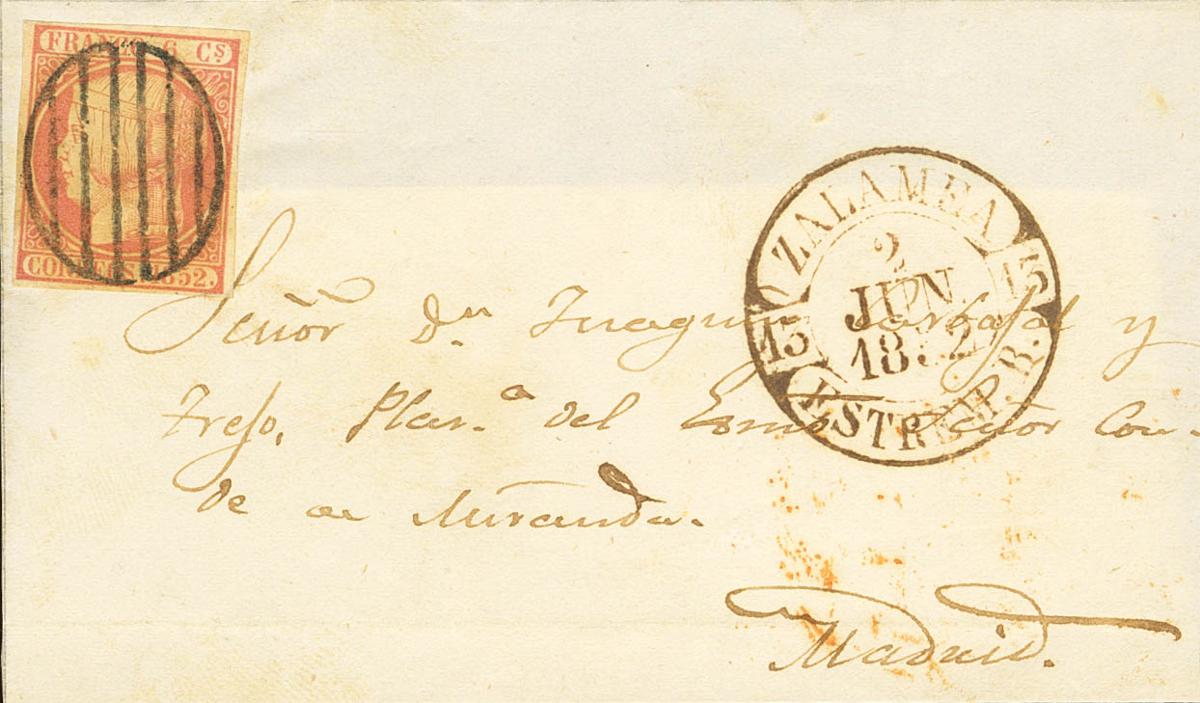 FRANCO 6 Cs
CORREOS 1852.
ZALAMEA
2
JUN
1852
13 13
ESTREM. B.
Señor Dn. Juaquin Carbajal y
Trejo, del Exmo Señor Con-
de de Miranda.
Madrid.